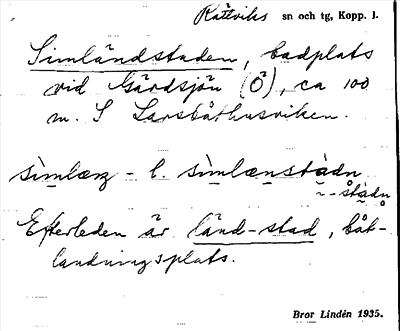 Rättviks sn och tg, Kopp. l.
Simländstaden, badplats
vid Gärdsjön (Ö), ca 100
m. S Larsbåthusviken.
sìmlæn – l. sìmlænstàdn
~ -stàdn
Efterleden är länd-stad, båt-
landningsplats.
Bror Lindén 1935.